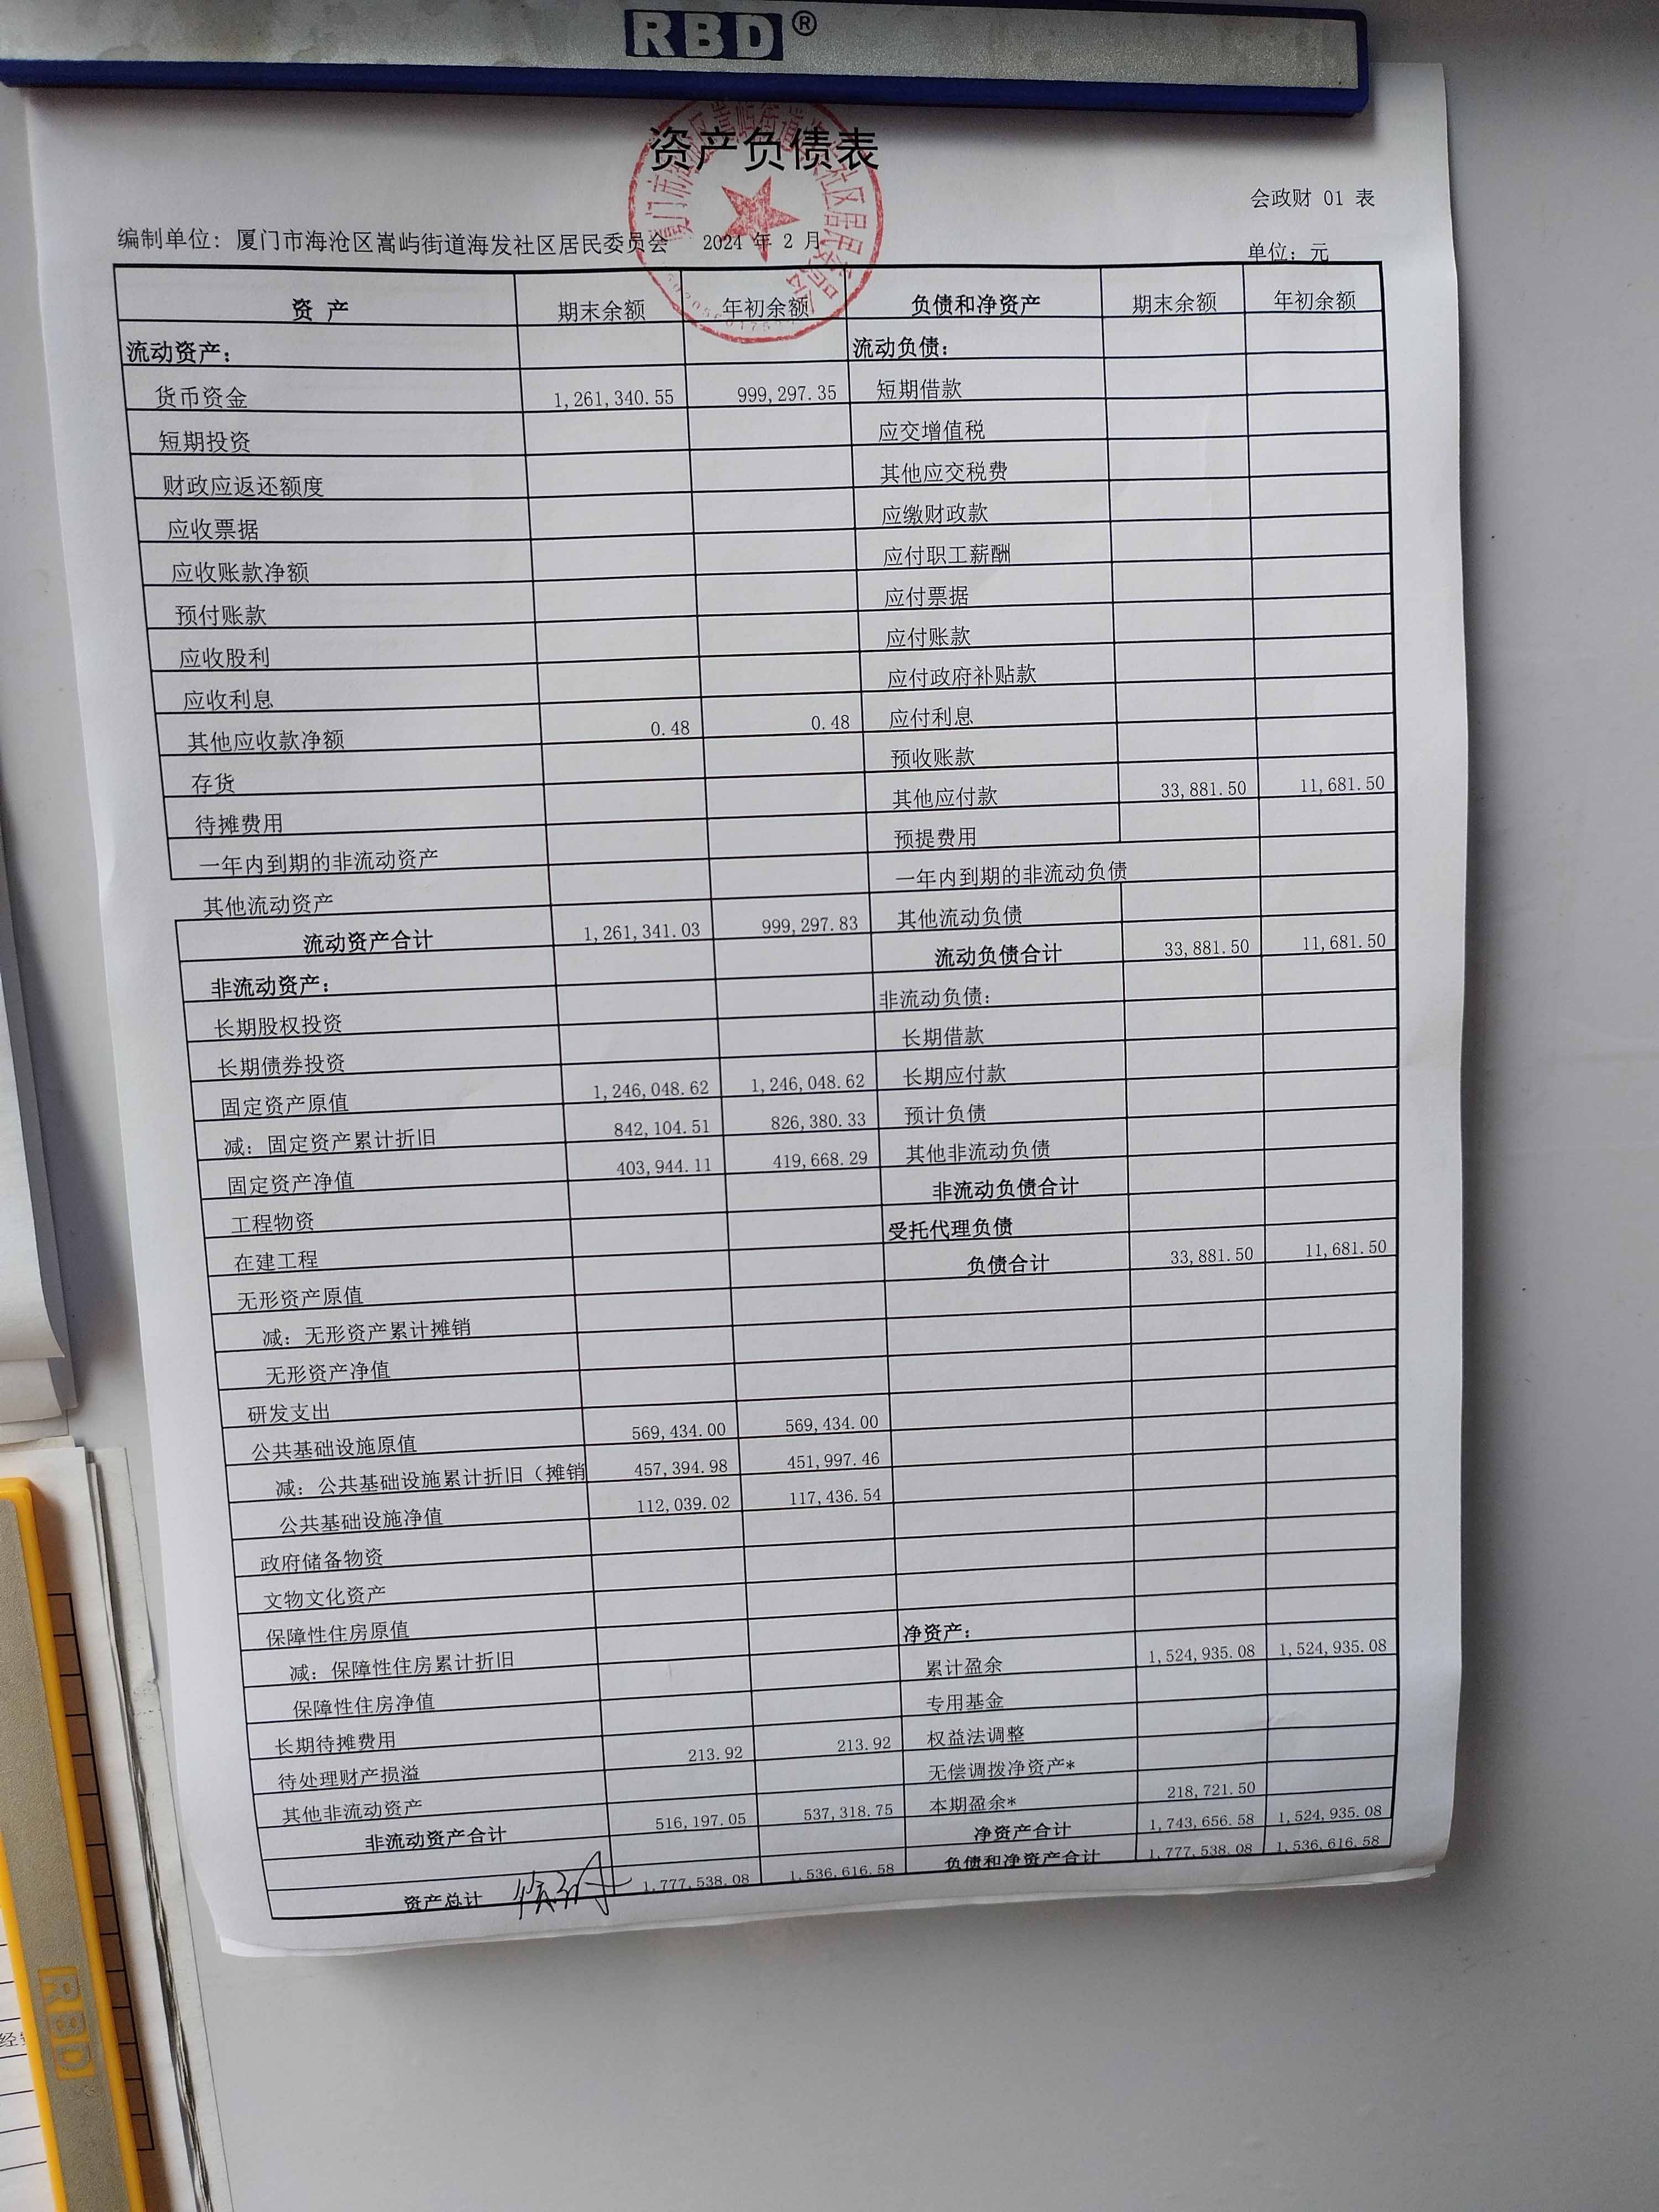 RBD®
资产负债表
会政财 01 表
编制单位：厦门市海沧区嵩屿街道海发社区居民委员会 2024 年 2 月 单位：元
资 产 期末余额 年初余额 负债和净资产 期末余额 年初余额
流动资产： 流动负债：
货币资金 1,261,340.55 999,297.35 短期借款
短期投资 应交增值税
财政应返还额度 其他应交税费
应收票据 应缴财政款
应收账款净额 应付职工薪酬
预付账款 应付票据
应收股利 应付账款
应收利息 应付政府补贴款
其他应收款净额 0.48 0.48 应付利息
存货 预收账款
待摊费用 其他应付款 33,881.50 11,681.50
一年内到期的非流动资产 预提费用
其他流动资产 一年内到期的非流动负债
流动资产合计 1,261,341.03 999,297.83 其他流动负债
非流动资产： 流动负债合计 33,881.50 11,681.50
长期股权投资 非流动负债：
长期债券投资 长期借款
固定资产原值 1,246,048.62 1,246,048.62 长期应付款
减：固定资产累计折旧 842,104.51 826,380.33 预计负债
固定资产净值 403,944.11 419,668.29 其他非流动负债
工程物资 非流动负债合计
在建工程 受托代理负债
无形资产原值 负债合计 33,881.50 11,681.50
减：无形资产累计摊销
无形资产净值
研发支出
公共基础设施原值 569,434.00 569,434.00
减：公共基础设施累计折旧（摊销 457,394.98 451,997.46
公共基础设施净值 112,039.02 117,436.54
政府储备物资
文物文化资产
保障性住房原值 净资产：
减：保障性住房累计折旧 累计盈余 1,524,935.08 1,524,935.08
保障性住房净值 专用基金
长期待摊费用 权益法调整
待处理财产损溢 213.92 213.92 无偿调拨净资产*
其他非流动资产 本期盈余* 218,721.50
非流动资产合计 516,197.05 537,318.75 净资产合计 1,743,656.58 1,524,935.08
资产总计 1,777,538.08 1,536,616.58 负债和净资产合计 1,777,538.08 1,536,616.58
RBD